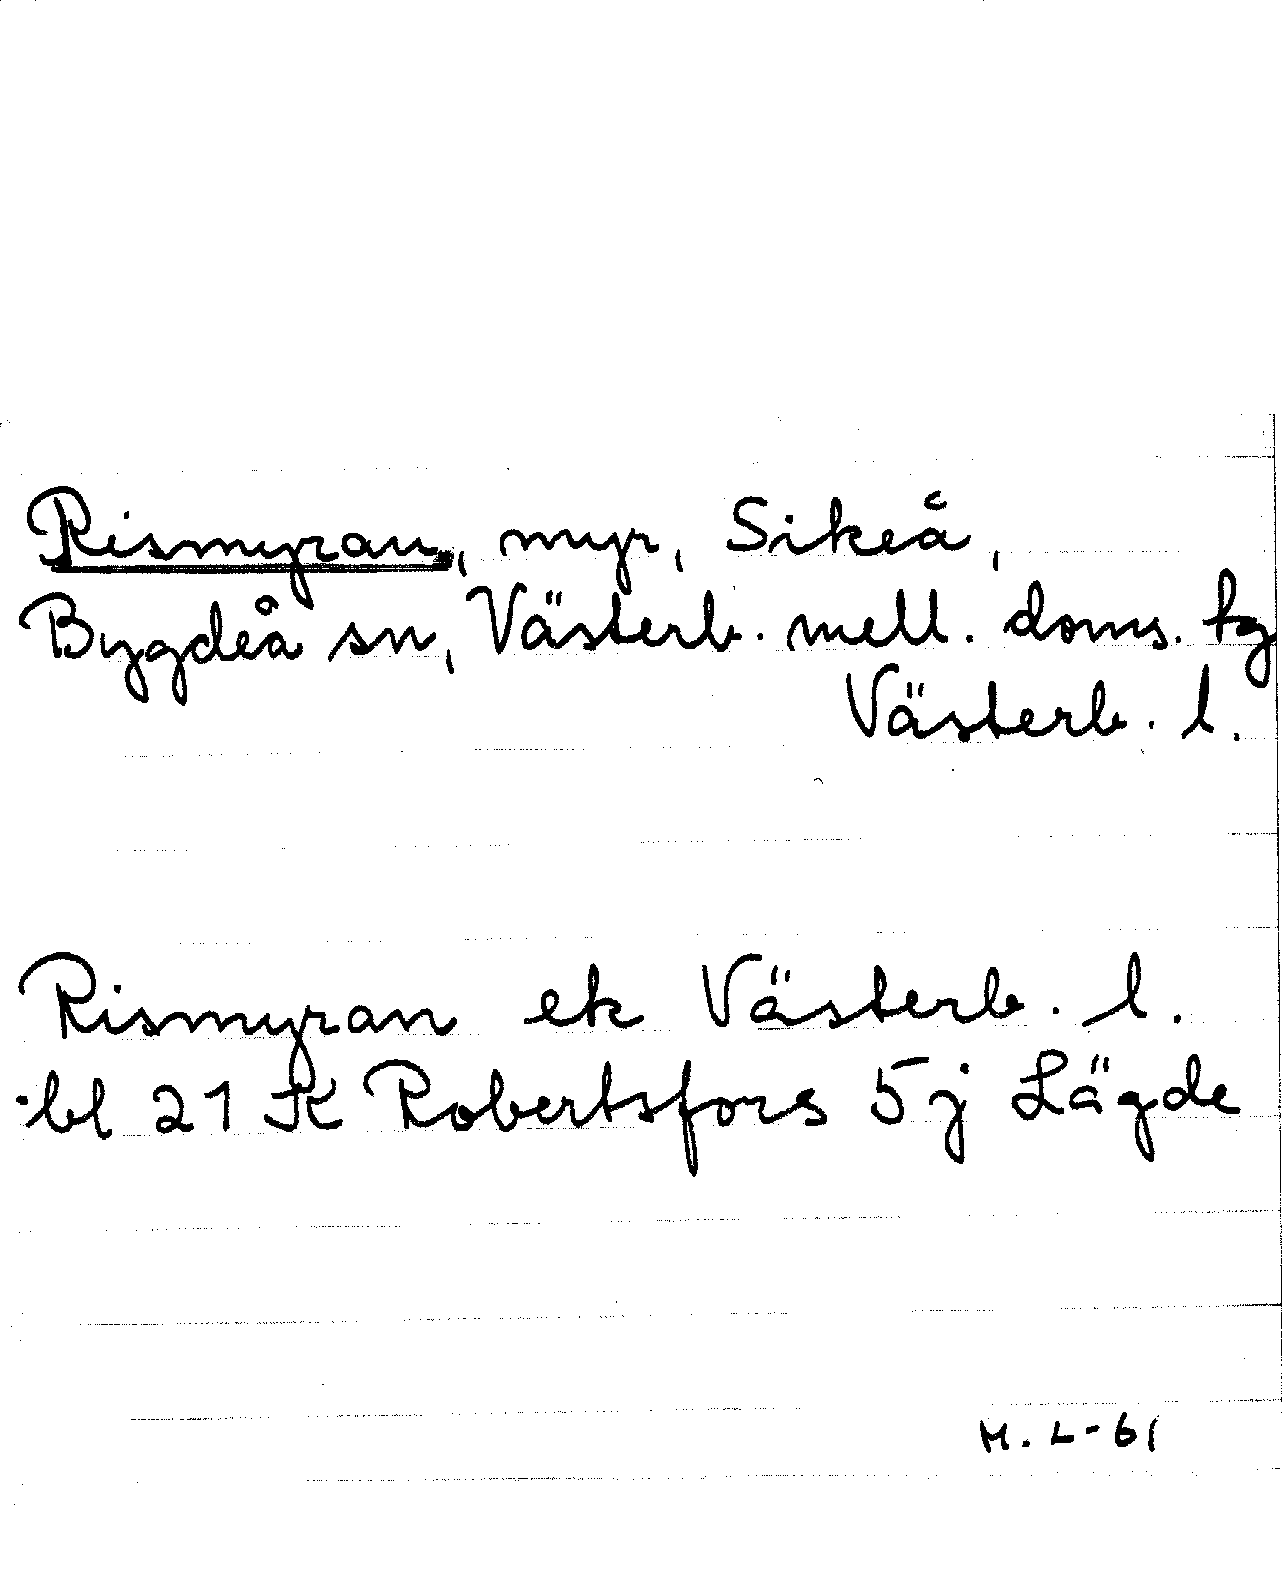 Rismyran, myr, Sikeå,
Bygdeå sn, Västerb. mell. doms. tg
Västerb. l.
Rismyran ek Västerb. l.
bl 21 K Robertsfors 5 j Lägde
M. L-61